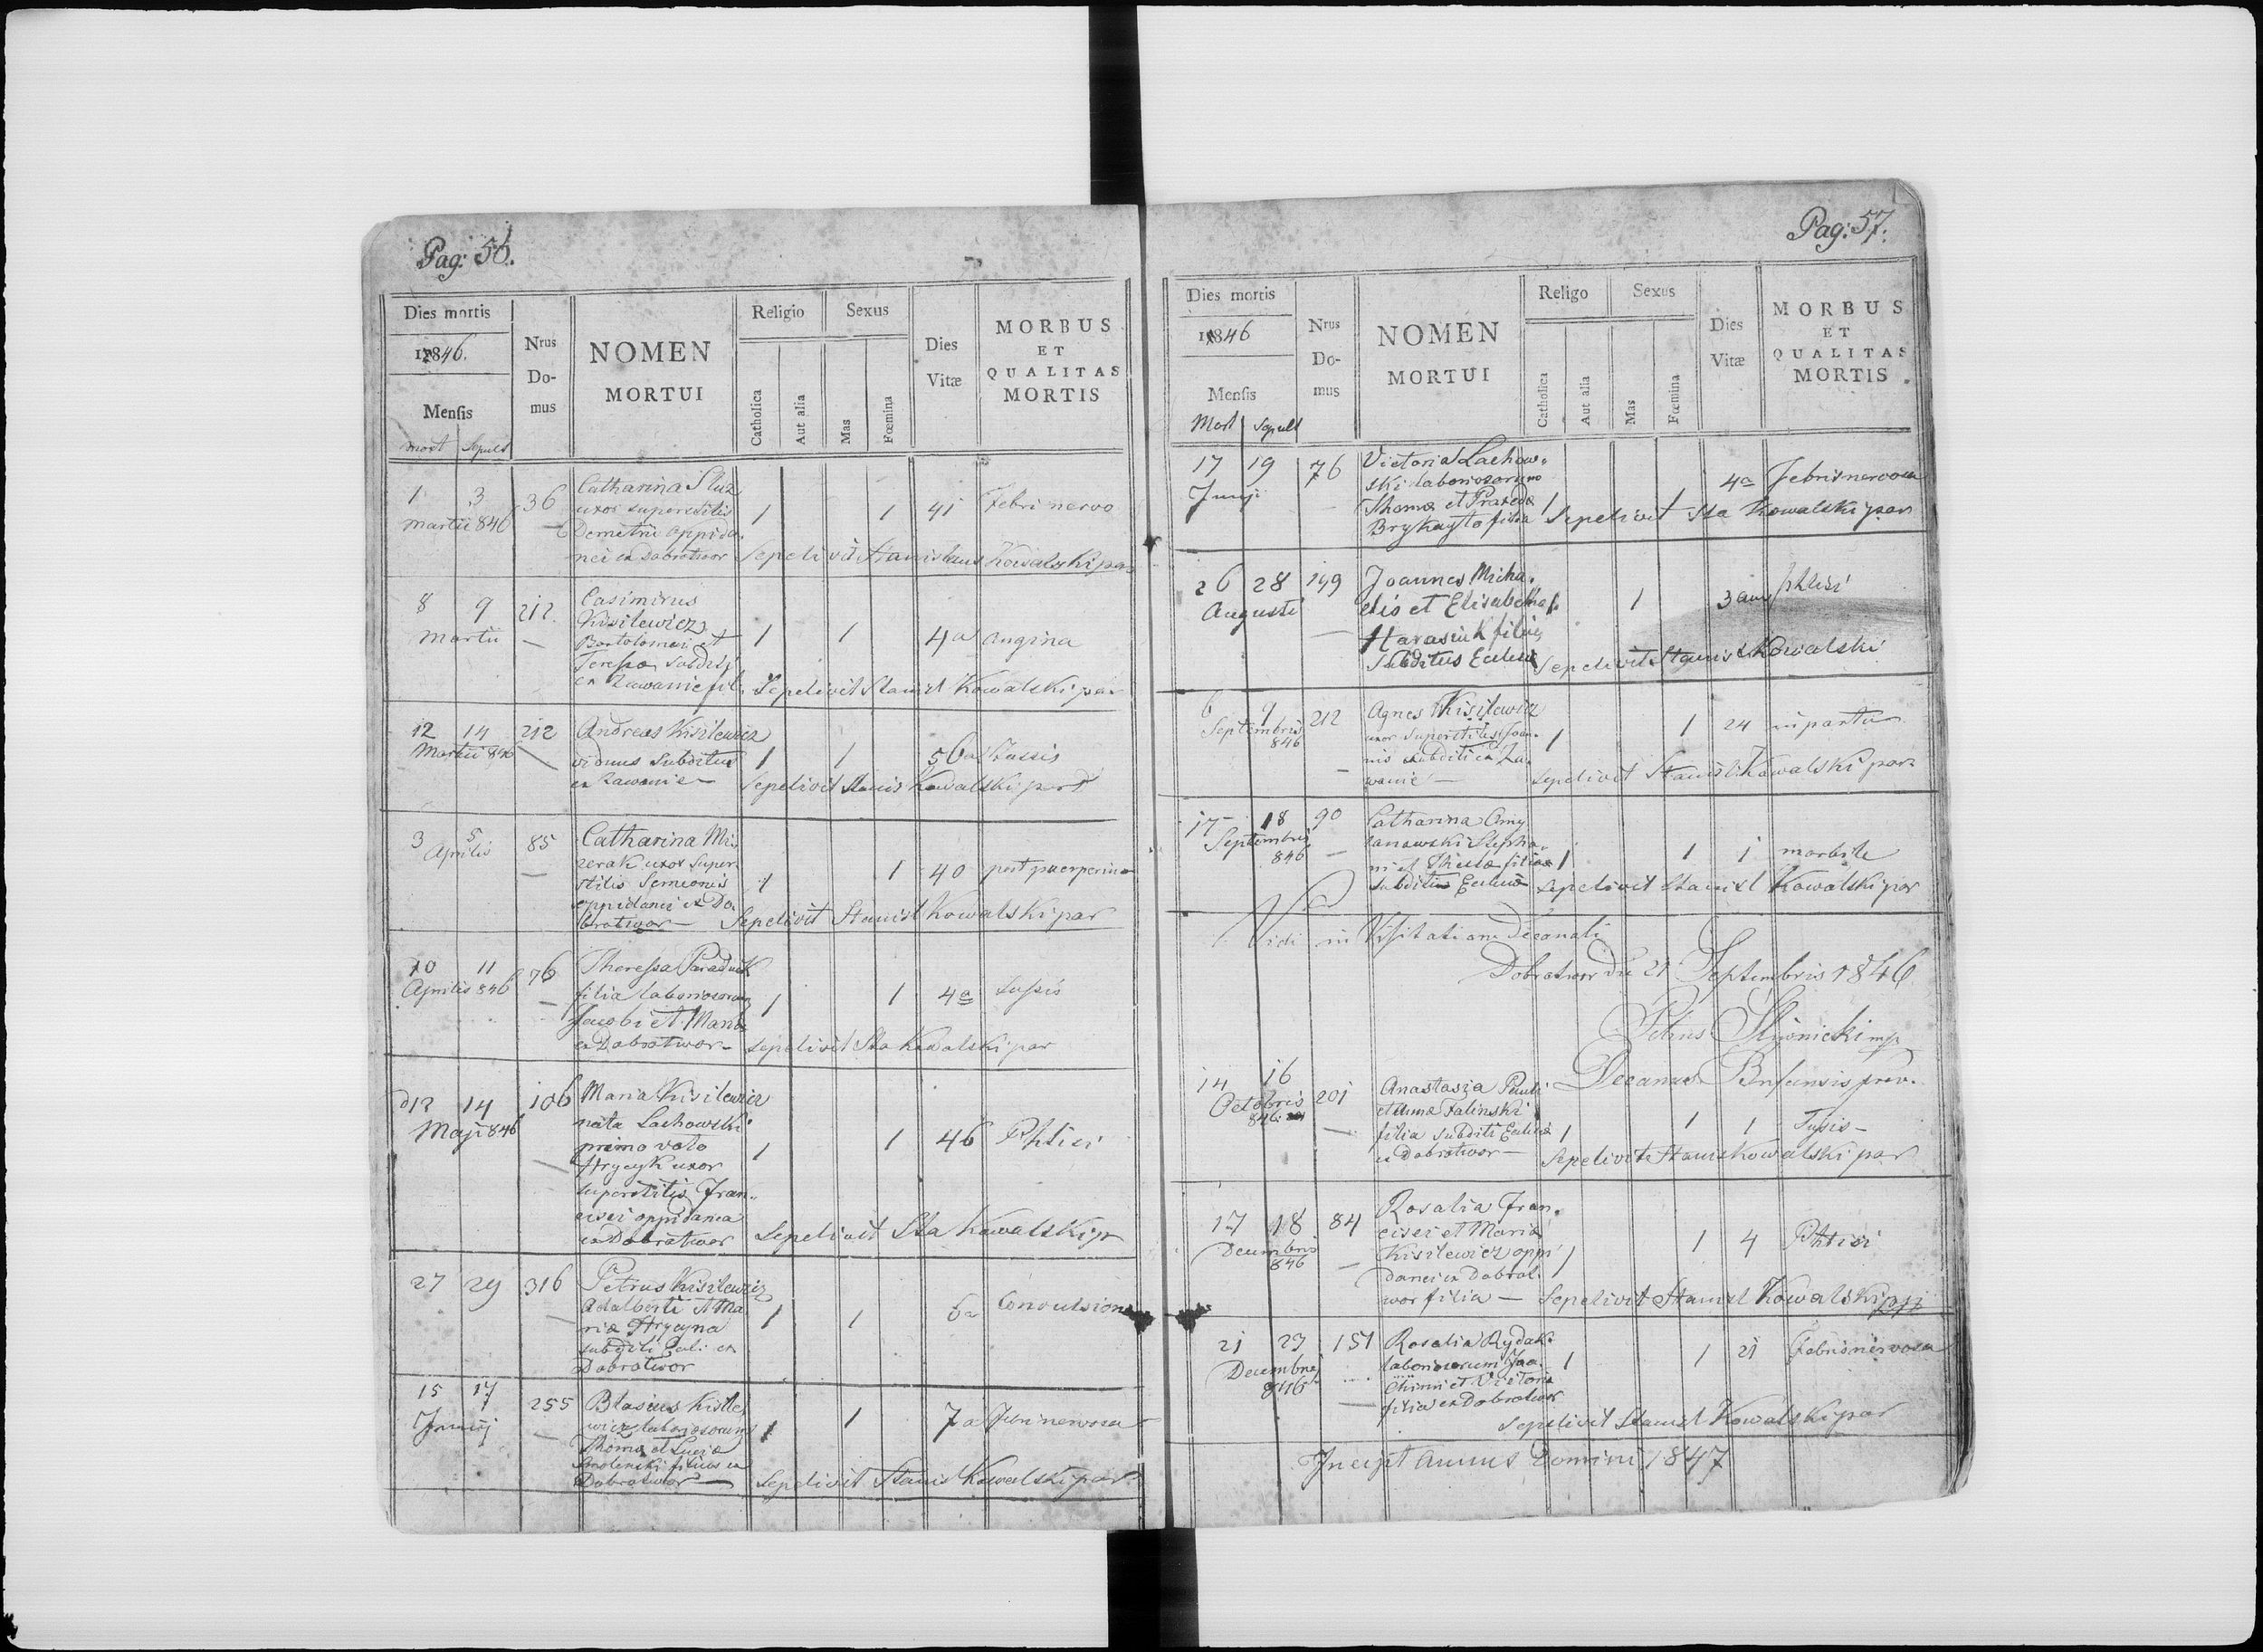 Pag: 56.
Dies mortis
1846.
Mensis
mort Sepult
Nrus
Do-
mus
NOMEN
MORTUI
Religio
Catholica
Aut alia
Sexus
Mas
Fœmina
Dies
Vitæ
MORBUS
ET
QUALITAS
MORTIS
1 3
martii 846
36
Catharina
uxor superstitis
Demetrii oppida-
nei ex Dobrotwor
1 1 41
Febri nervo
Sepelivit Stanislaus Kowalski par
8 9
Martii
212
Casimirus
Kisilewicz
Bartolomei et
Teressa subditi
ex Zawanie fil
1 1 4 a angina
Sepelivit Stanisl Kowalski par
12 14
Martii 846
212
Andreas Kisilewicz
viduus subditus
ex Zawanie
1 1 56 a Tussis
Sepelivit Stanis Kowalski par
3 5
Aprilis
85
Catharina Mi-
zerak uxor super-
stitis Semionis
oppidanei ex Do-
brotwor
1 1 40 post puerperium
Sepelivit Stanisl Kowalski par
10 11
Aprilis 846
76
Theressa
filia laboriosorum
Jacobi et Maria
ex Dobrotwor
1 1 4 a tussis
sepelivit Sta Kowalski par
12 14
Maji 846
106
Maria Kisilewicz
nata Lachowski
primo voto
Hrycyk uxor
superstitis Fran-
cisci oppidanea
ex Dobrotwor
1 1 46 Phtisi
Sepelivit Sta Kowalski p
27 29 316
Petrus Kisilewicz
Adalberti et Ma-
ria Hrycyna
subditi ex
Dobrotwor
1 1 6 a Convulsion
15 17
Junij
255
Blasius Kisile-
wicz laboriosorum
Thoma et Lucia
Smolenski filius ex
Dobrotwor
1 1 7 a nervosa
Sepelivit Stanis Kowalski par
Pag: 57.
Dies mortis
1846
Mensis
Mort Sepult
Nrus
Do-
mus
NOMEN
MORTUI
Religo
Catholica
Aut alia
Sexus
Mas
Fœmina
Dies
Vitæ
MORBUS
ET
QUALITAS
MORTIS
17 19
Junij
76
Victoria Lachow-
ski laboriosorum
Thoma et Praxeda
filia
1 1 4 a Febris nervosa
Sepelivit Sta Kowalski par
26 28
Augusti
149
Joannes Micha-
elis et Elisabetha
Harasiuk filius
Subditus Ecclesia
1 3 phtisi
Sepelivit Stanisl Kowalski
6 9
Septembris
846
212
Agnes Kisilewicz
uxor superstitis Joan-
nis subditi ex Za-
wanie
1 1 24 in partu
sepelivit Stanisl Kowalski par
17 18
Septembris
846
90
Catharina
Stepha-
ni et Thecla filia
subditus Ecclesia
1 1 1 morbile
sepelivit Stanisl Kowalski par
Vidi in Visitatione Decanali
Dobrotwor Die 21 Septembris 1846
Petrus
Decanus
14 16
Octobris
846
201
Anastazia Pauli
et Anna Falinski
filia subditi Eccleia
ex Dobrotwor
1 1 1 Tusis
Sepelivit Stanis Kowalski par
17 18
Decembris
846
84
Rosalia Fran-
cisci et Maria
Kisilewicz oppi-
danei ex Dobrot-
wor filia
1 1 4 Phtisi
Sepelivit Stanisl Kowalski
21 23
Decembris
846
151
Rosalia Rydak
laboriosorum Joa-
chimi et Victoria
filia ex Dobrotwor
1 1 21 febris nervosa
sepelivit Stanisl Kowalski par
Incipit annus Domini 1847